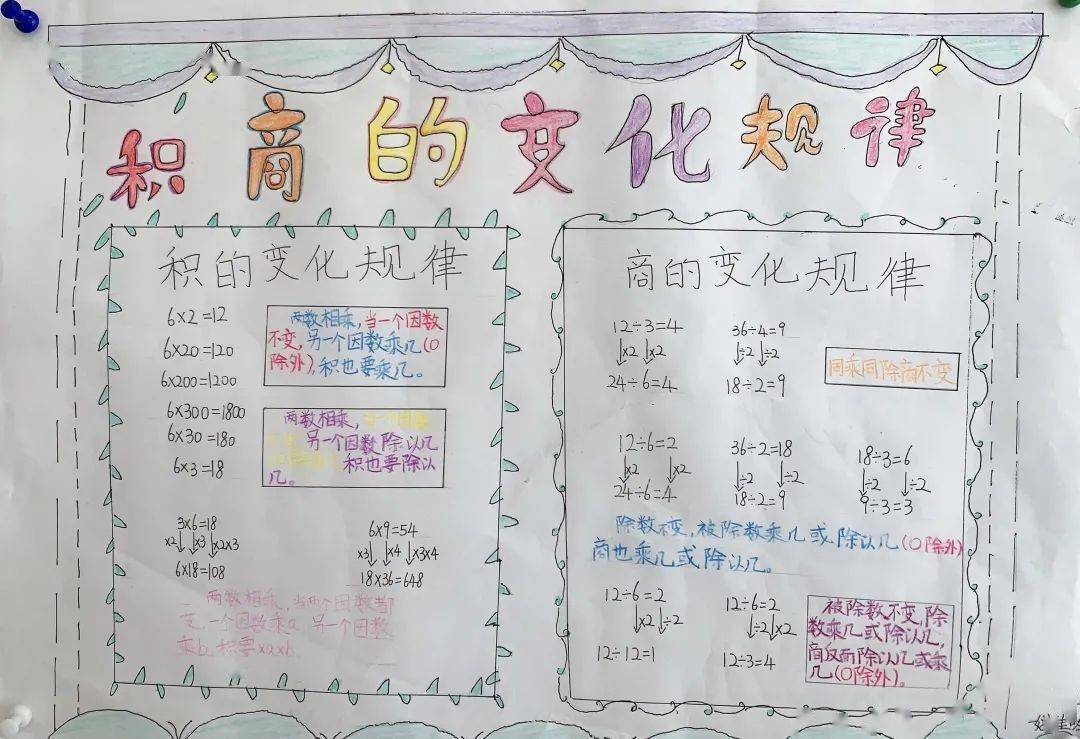 积商的变化规律
积的变化规律
6×2=12
6×20=120
6×200=1200
6×300=1800
6×30=180
6×3=18
两数相乘,当一个因数
不变,另一个因数乘几(0
除外),积也要乘几。
两数相乘,当一个因数
另一个因数除以几
积也要除以
几。
3×6=18
×2 ×3 ×2×3
6×18=108
6×9=54
×3 ×4 ×3×4
18×36=648
两数相乘,当两个因数都
变,一个因数乘a,另一个因数
乘b,积要×a×b
商的变化规律
12÷3=4
×2 ×2
24÷6=4
36÷4=9
÷2 ÷2
18÷2=9
同乘同除商不变
12÷6=2
×2 ×2
24÷6=4
36÷2=18
÷2 ÷2
18÷2=9
18÷3=6
÷2 ÷2
9÷3=3
除数不变,被除数乘几或除以几(0除外)
商也乘几或除以几。
12÷6=2
×2 ÷2
12÷12=1
12÷6=2
÷2 ×2
12÷3=4
被除数不变,除
数乘几或除以几,
商反而除以几或乘
几(0除外)。